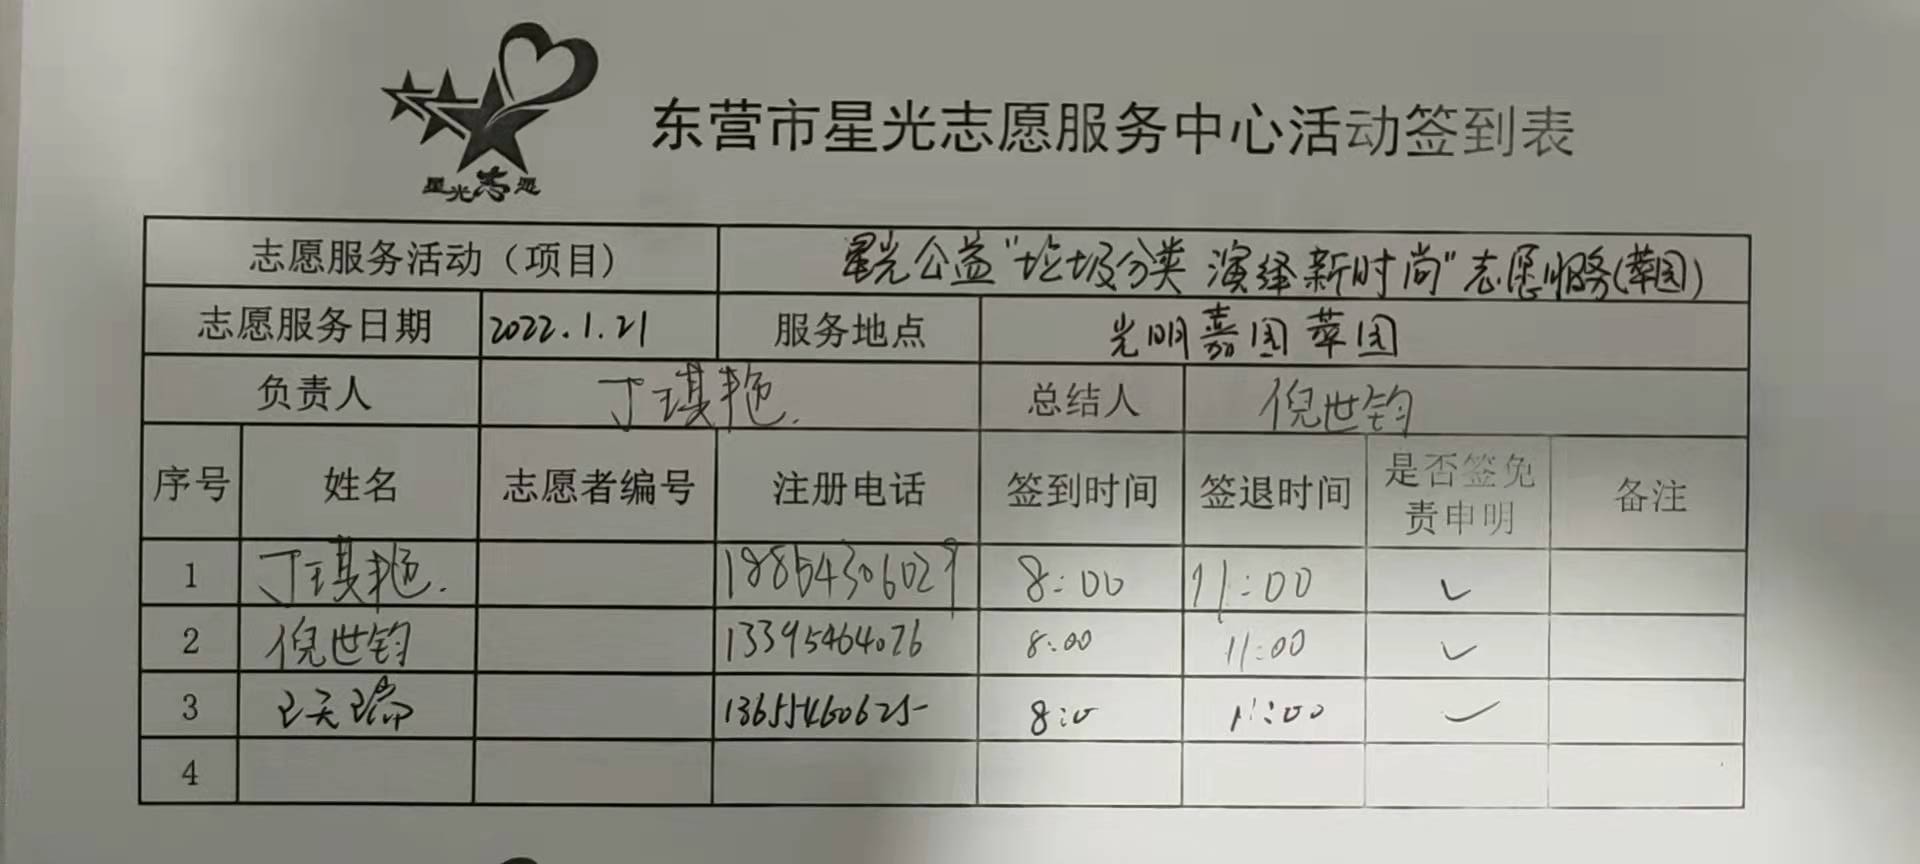 星光志愿
东营市星光志愿服务中心活动签到表
志愿服务活动（项目） 星光公益“垃圾分类 演绎新时尚”志愿服务(萃园)
志愿服务日期 2022.1.21 服务地点 光明嘉园萃园
负责人 丁琪艳. 总结人 倪世钧
序号 姓名 志愿者编号 注册电话 签到时间 签退时间 是否签免责申明 备注
1 丁琪艳. 18854306029 8:00 11:00 ✓
2 倪世钧 13395464076 8:00 11:00 ✓
3 王天瑞 13655460625 8:0 11:00 ✓
4